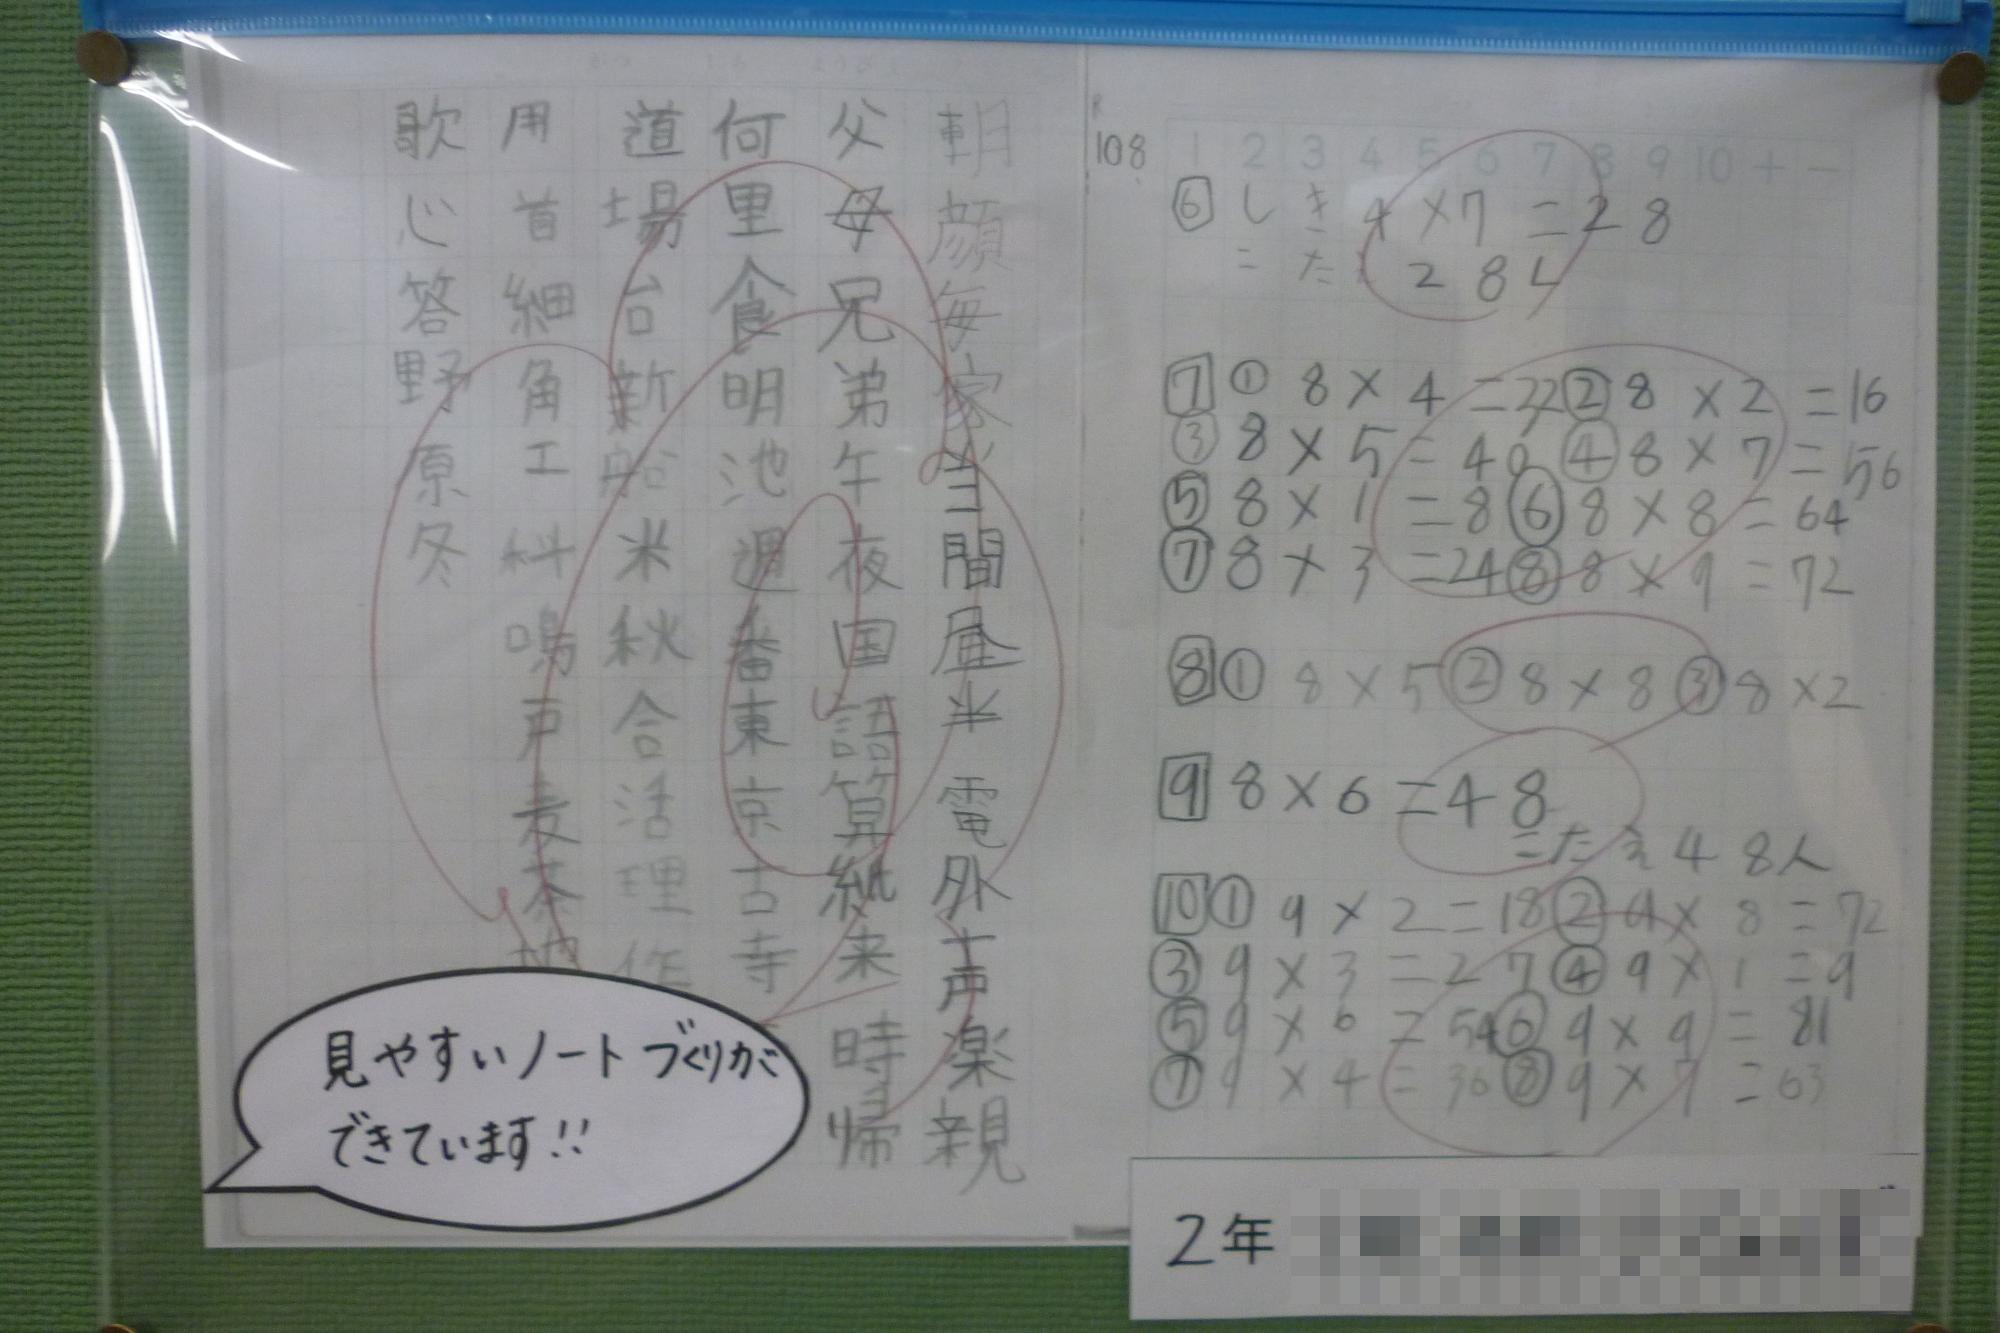 朝顔毎家当間昼半電外声楽親
父母兄弟午夜国語算紙来時帰
何里食明池週番東京古寺
道場台新船米秋合活理作
用首細角工科鳴戸麦茶地
歌心答野原冬
108
1 2 3 4 5 6 7 8 9 10 + −
⑥ しき 4×7=28
こた 28L
7 ① 8×4=32 ② 8×2=16
③ 8×5=40 ④ 8×7=56
⑤ 8×1=8 ⑥ 8×8=64
⑦ 8×3=24 ⑧ 8×9=72
8 ① 8×5 ② 8×8 ③ 8×2
9 8×6=48
こたえ48人
10 ① 9×2=18 ② 9×8=72
③ 9×3=27 ④ 9×1=9
⑤ 9×6=54 ⑥ 9×9=81
⑦ 9×4=36 ⑧ 9×7=63
見やすいノートづくりが
できています!!
2年